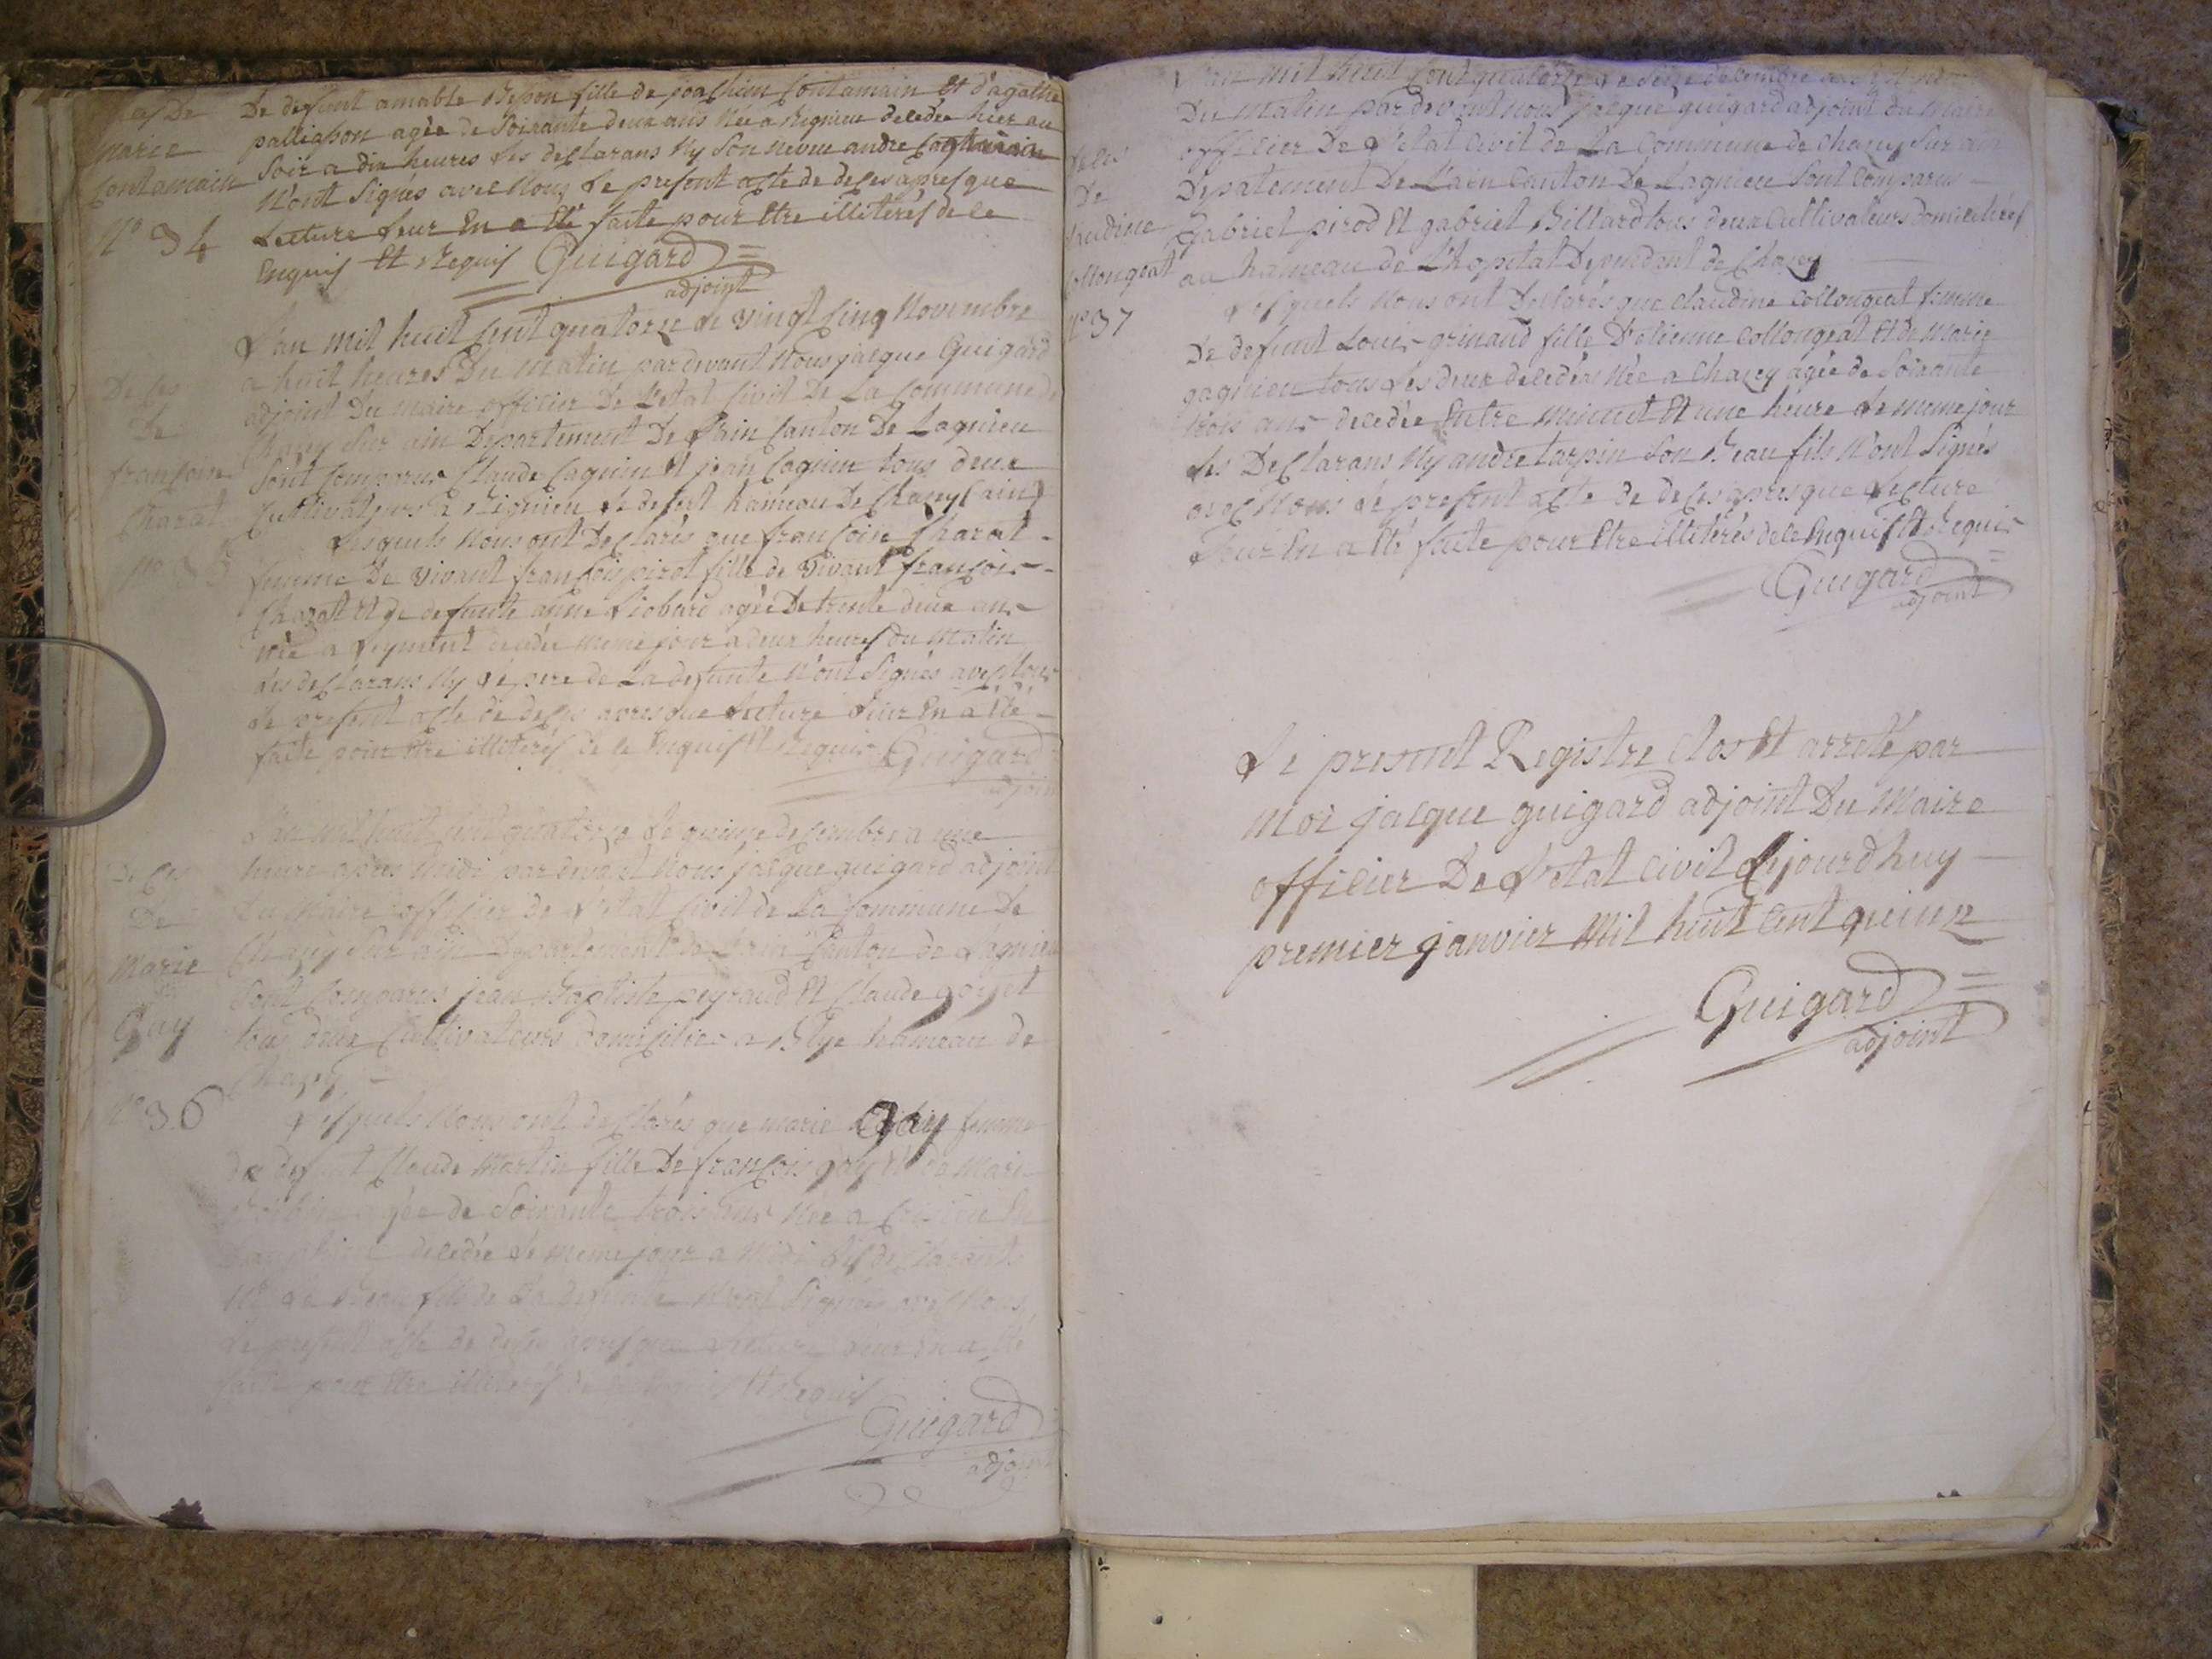 De
marie
Contamain
N° 34
De deffunt amable Besson fille de joachim Contamain Et d'agathe
palliasson agée de Soixante deux ans Née a Rignieu decedée hier au
Soir a dix heures Les declarans Ny Son neveu andre Contamain
N'ont Signés avec Nous Le present acte de deces apres que
Lecture Leur En a Eté faite pour Etre illiterés de ce
Enquis Et Requis Guigard
adjoint
Deces
De
francoise
Charat
N° 35
L'an mil huit cent quatorze Le vingt cinq Novembre
a huit heures Du Matin pardevant Nous jacque Guigard
adjoint Du Maire officier De L'etat Civil De La Commune de
Chazey Sur ain Departement De L'ain Canton De Lagnieu
Sont Comparus Claude Cagnin Et jean Cagnin tous deux
Cultivateurs a Rignieu Le desert hameau De Chazey (ain)
Lesquels Nous ont Declarés que francoise Charat
femme De vivant francois pirot fille de vivant francois
Charat Et de defunte anne Liobard agée De trente deux ans
Née a Leyment decedée meme jour a deux heures du Matin
Les declarans Ny Le pere de La defunte N'ont Signés avec Nous
Le present acte de deces apres que Lecture Leur En a Eté
faite pour Etre illiterés de ce Enquis Et Requis Guigard
adjoint
Deces
De
Marie
Gay
N° 36
L'an mil huit cent quatorze Le quinze decembre a une
heure apres Midi pardevant Nous jacque guigard adjoint
Du Maire officier de L'etat Civil de La Commune De
Chazey Sur ain Departement de L'ain Canton de Lagnieu
Sont Comparus jean Baptiste peyraud Et Claude gorget
tous deux Cultivateurs domicilies a Blye hameau de
Chazey
Lesquels Nous ont declarés que marie Gay femme
de defunt Claude Martin fille De francois gay Et de Marie
agée de Soixante trois ans Née a
decedée Le meme jour a Midi Les declarants
Ny Le Beau fils de La defunte N'ont Signés avec Nous
Le present acte de deces apres que Lecture Leur En a Eté
faite pour Etre illiterés de ce Enquis Et Requis
Guigard
adjoint
Deces
De
Claudine
Collongeat
N° 37
L'an mil huit Cent quatorze Le Seize decembre a
Du Matin pardevant Nous jacque guigard adjoint du Maire
officier De L'etat Civil de La Commune de Chazey Sur ain
Departement De L'ain Canton De Lagnieu Sont Comparus
Gabriel pirod Et gabriel Billard tous deux Cultivateurs domicilies
au hameau de L'hopital Dependant de Chazey
Lesquels Nous ont Declarés que Claudine Collongeat femme
De defunt Louis grinand fille D'etienne Collongeat Et de Marie
gagnieu tous Les deux decedés Née a Chazey agée de Soixante
trois ans decedée Entre Minuit Et une heure Le meme jour
Les Declarans Ny andre tarpin Son Beau fils N'ont Signés
avec Nous Le present acte de deces apres que Lecture
Leur En a Eté faite pour Etre illiterés de ce Enquis Et Requis
Guigard
adjoint
Le present Registre Clos Et arreté par
Moi jacque guigard adjoint Du Maire
officier De L'etat Civil Aujourdhuy
premier janvier Mil huit Cent quinze
Guigard
adjoint